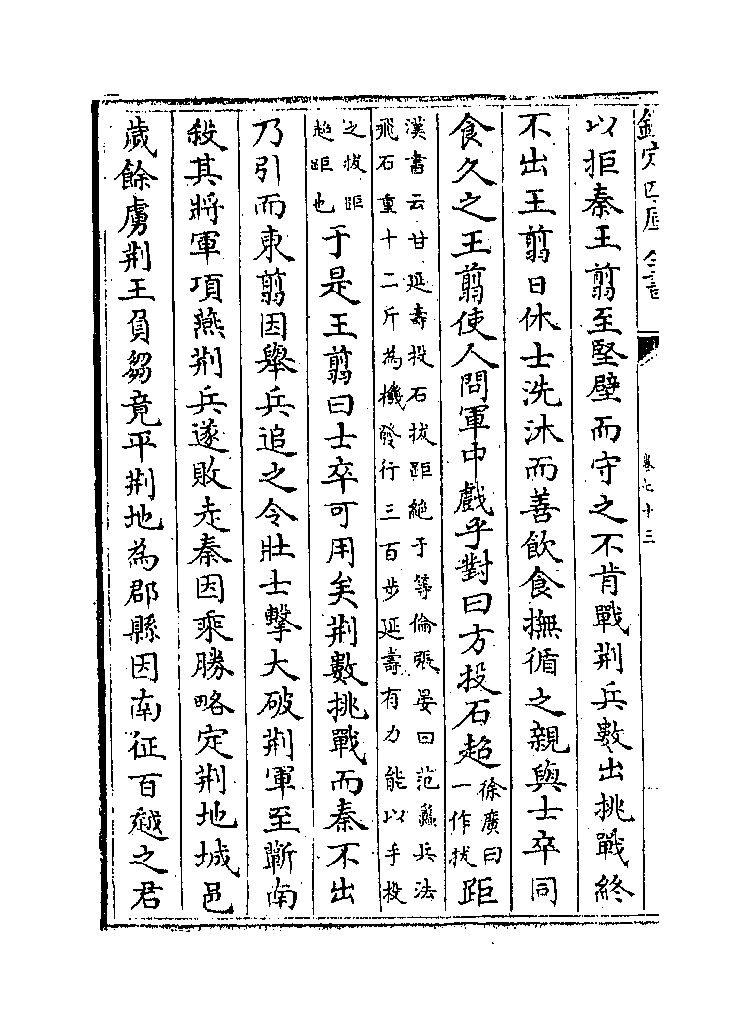 欽定四庫全書
卷七十三
以拒秦王翦至堅壁而守之不肯戰荆兵數出挑戰終
不出王翦日休士洗沐而善飲食撫循之親與士卒同
食久之王翦使人問軍中戲乎對曰方投石超
徐廣曰
一作拔
距
漢書云甘延壽投石拔距絶于等倫張晏曰范蠡兵法
飛石重十二斤為機發行三百步延壽有力能以手投
之拔距
超距也
于是王翦曰士卒可用矣荆數挑戰而秦不出
乃引而東翦因舉兵追之令壯士擊大破荆軍至蘄南
殺其將軍項燕荆兵遂敗走秦因乘勝略定荆地城邑
歲餘虜荆王負芻竟平荆地為郡縣因南征百越之君